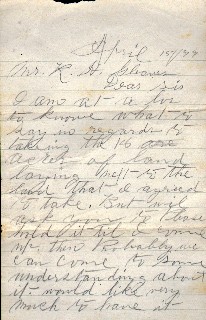 April 15/99
Mr. R. H. Gleaves
Dear Sir
I am at a loss
to know what to
say in regards to
taking the 16 acre
of land
laying next to the
land that I agreed
to take. But will
ask you to please
hold it till I come
up then Probably we
can come to some
understanding about
it would like very
much to have it